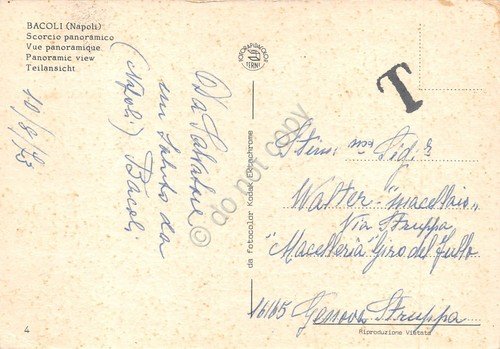 BACOLI (Napoli)
Scorcio panoramico
Vue panoramique
Panoramic view
Teilansicht
10/8/73
Da Salvatore
un saluto da
(Napoli) Bacoli
4
da fotocolor Kodak Ektachrome
TERNI
T
Sig.
Walter - "macellaio"
Via Struppa
"Macelleria" Giro del Fullo
16165 Genova Struppa
Riproduzione Vietata
© do not copy